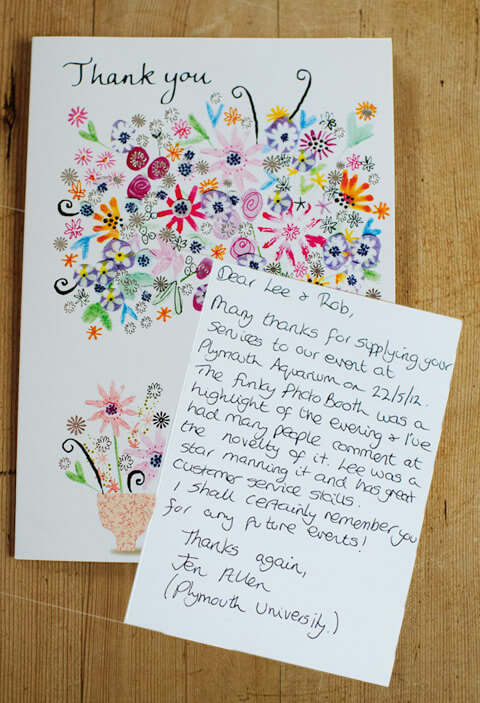 Thank you
Dear Lee & Rob,
Many thanks for supplying your
services to our event at
Plymouth Aquarium on 22/5/12.
The funky Photo Booth was a
highlight of the evening & I've
had many people comment at
the novelty of it. Lee was a
star manning it and has great
customer service skills.
I shall certainly remember you
for any future events!
Thanks again,
Jen Allen
(Plymouth University.)